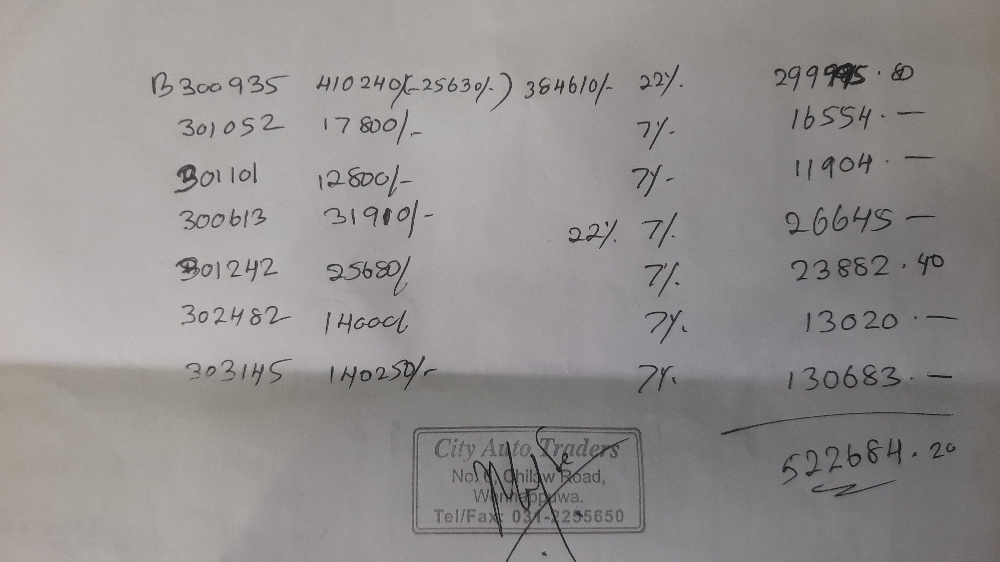 B300935 410240/- (-25630/-) 384610/- 22% 299995.80
301052 17800/- 7% 16554.—
301101 12800/- 7% 11904.—
300613 31910/- 22% 7% 26645 —
301242 25680/ 7% 23882.40
302482 14000/ 7% 13020.—
303145 140250/- 7% 130683.—
522684.20
City Auto Traders
Chilaw Road,
Wennappuwa.
Tel/Fax: 031-2255650